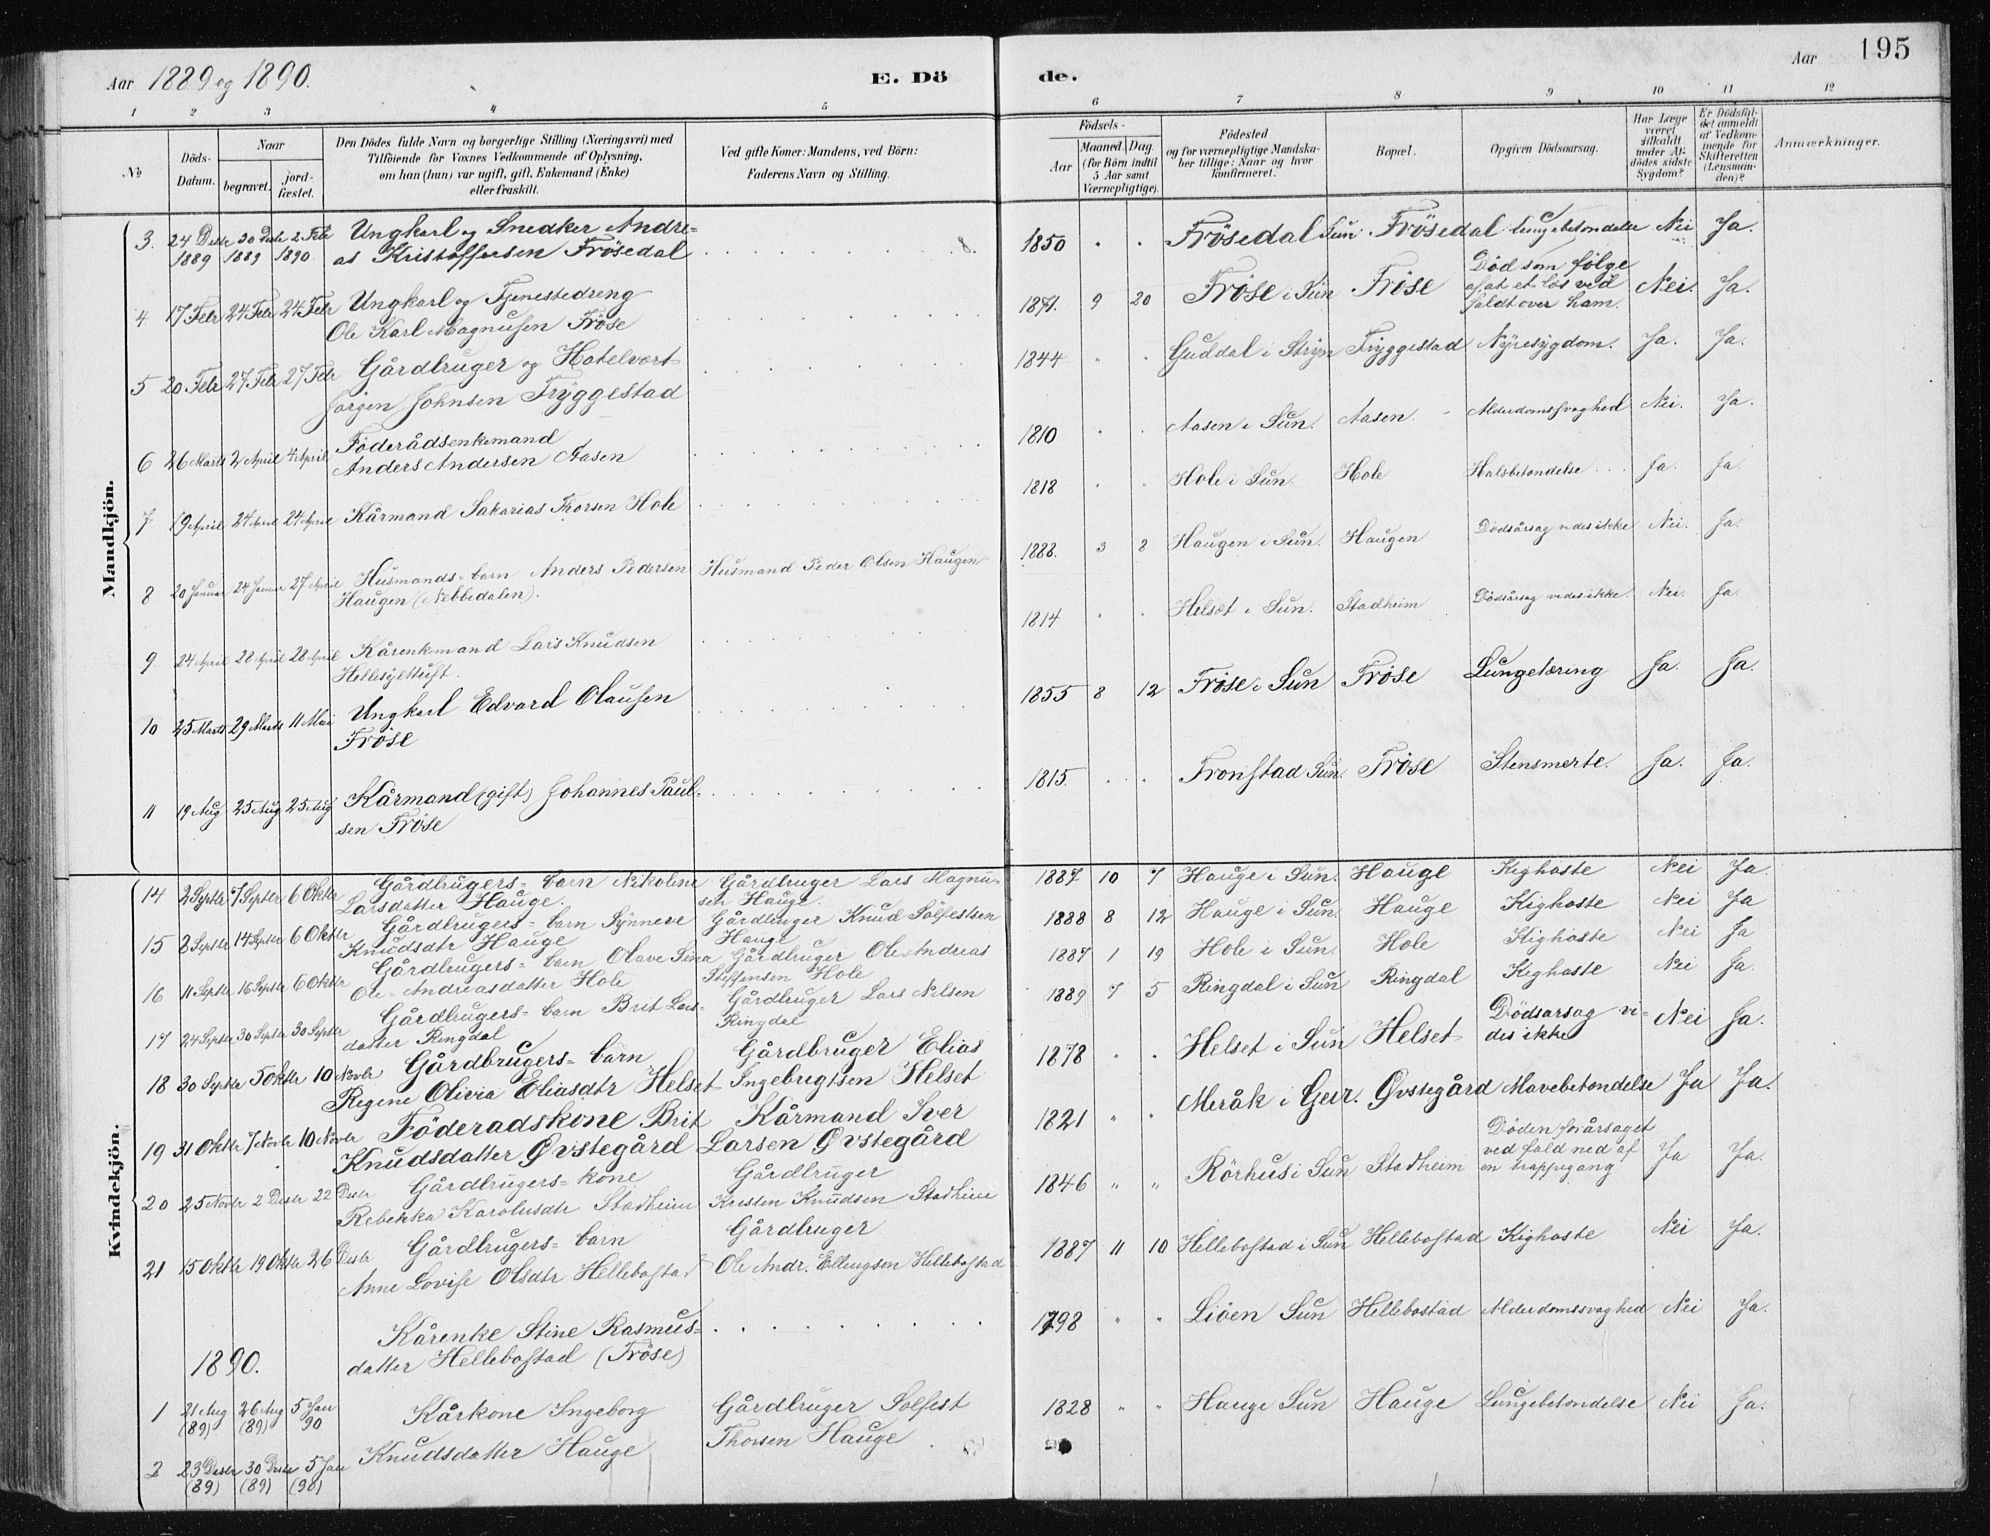 Aar 1889 og 1890.
E. Dö
de.
Aar
195
1 2 3 4 5 6 7 8 9 10 11 12
№
Döds-
Datum.
Naar
begravet.
jord-
fæstet.
Den Dödes fulde Navn og borgerlige Stilling (Næringsvei) med
Tilföiende for Voxnes Vedkommende af Oplysning,
om han (hun) var ugift, gift, Enkemand (Enke)
eller fraskilt.
Ved gifte Koner: Mandens, ved Börn:
Faderens Navn og Stilling.
Födsels-
Aar
Maaned. Dag.
(for Börn indtil
5 Aar samt
Værnepligtige).
Födested
og for værnepligtige Mandska-
ber tillige: Naar og hvor
konfirmeret.
Bopæl.
Opgiven Dödsaarsag.
Har Læge
været
tilkaldt
under Af-
dödes sidste
Sygdom?
Er Dödsfal-
det anmeldt
af Vedkom-
mende for
Skifteretten
(Lensman-
den)?
Anmærkninger.
Mandkjön.
3. 24 Decbr 30 Decbr 2 Febr Ungkarl og Snedker Andre-
1889 1889 1890 as Kristoffersen Frösedal 8. 1850 Frösedal Sun Frösedal Lungebetændelse Nei Ja.
4. 17 Febr 24 Febr 24 Febr Ungkarl og Tjenestedreng
Ole Karl Magnussen Fröse 1871. 9 20 Fröse i Sun Fröse Död som følge
af at et læs ved
faldt over ham. Nei. Ja.
5 20 Febr 27 Febr 27 Febr Gårdbruger og Hotelvært
Jörgen Johnsen Tryggestad 1844 Guddal i Stryn Tryggestad Nyresygdom. Ja. Ja.
6 26 Marts 2 April 4 April Föderådsenkemand
Anders Andersen Aasen 1810 Aasen i Sun. Aasen. Alderdomssvaghed Nei. Ja.
7 19 April 24 April 24 April Kårmand Sakarias Thorsen Hole 1818 Hole i Sun. Hole Halsbetændelse Ja. Ja
8 20 Januar 24 Januar 27 April Husmands-barn Anders Pedersen
Haugen (Nebbedalen). Husmand Peder Olsen Haugen 1888. 3 8 Haugen i Sun. Haugen Dödsårsag vides ikke Nei. Ja.
9 24 April 28 April 28 April Kårenkemand Lars Knudsen
Hellesylttuft. 1814 Helset i Sun. Stadheim Dödsårsag vides ikke. Nei. Ja.
10 25 Marts 29 Marts 11 Mai Ungkarl Edvard Olausen
Fröse 1855 8 12 Fröse i Sun Fröse Lungetæring Ja. Ja.
11 19 Aug 25 Aug 25 Aug Kårmand (gift) Johannes Paul-
sen Fröse 1815. Fronstad Sun. Fröse Stensmerte. Ja. Ja.
Kvindekjön.
14 2 Septbr 7 Septbr 6 Oktbr Gårdbrugers-barn Nikoline
Larsdatter Hauge. Gårdbruger Lars Magnu-
sen Hauge. 1887 10 7 Hauge i Sun. Hauge Kighoste Nei Ja.
15 8 Septbr 14 Septbr 6 Oktbr Gårdbrugers-barn Synneve
Knudsdtr Hauge Gårdbruger Knud Sölfestsen
Hauge 1888 8 12 Hauge i Sun. Hauge Kighoste Nei Ja
16 11 Septbr 16 Septbr 6 Oktbr Gårdbrugers-barn Olave Sina
Ole-Andreasdatter Hole Gårdbruger Ole Andreas
Steffensen Hole 1887 1 19 Hole i Sun. Hole Kighoste Nei Ja
17 24 Septbr 30 Septbr 30 Septbr Gårdbrugers-barn Brit Lars-
datter Ringdal Gårdbruger Lars Nilsen
Ringdal 1889 7 5 Ringdal i Sun Ringdal Kighoste Nei Ja.
18 30 Septbr 5 Oktbr 10 Novbr Gårdbrugers-barn
Regine Olivia Eliasdtr Helset Gårdbruger Elias
Ingebrigtsen Helset 1878 Helset i Sun Helset Dödsarsag vi-
des ikke Nei Ja.
19 31 Oktbr 7 Novbr 10 Novbr Föderadskone Brit
Knudsdatter Øvstegård Kårmand Iver
Larsen Øvstegård 1821 Meråk i Geir. Øvstegård Mavebetændelse Ja Ja.
20 25 Novbr 2 Desbr 22 Desbr Gårdbrugers-kone
Rebekka Karolusdtr Stadheim Gårdbruger
Kristen Knudsen Stadheim 1846 Rörhus i Sun Stadheim Döden forårsaget
ved fald ned af
en trappegang Ja Ja.
21 15 Oktbr 19 Oktbr 26 Desbr Gårdbrugers-barn
Anne Lovise Olsdtr Hellebostad Gårdbruger
Ole Andr. Ellingsen Hellebostad 1887 11 10 Hellebostad i Sun Hellebostad Kighoste Nei Ja.
1890.
1 21 Aug 26 Aug 5 Jan
(89) (89) 90 Kårenke Stine Rasmus-
datter Hellebostad (Fröse) 1798 Liöen Sun Hellebostad Alderdomssvaghed Nei Ja.
2 23 Desbr 30 Desbr 5 Jan
(89) (89) (90) Kårkone Ingeborg
Knudsdatter Hauge Gårdbruger Solfest
Thorsen Hauge 1828 Hauge Sun Hauge Lungebetændelse Nei Ja.